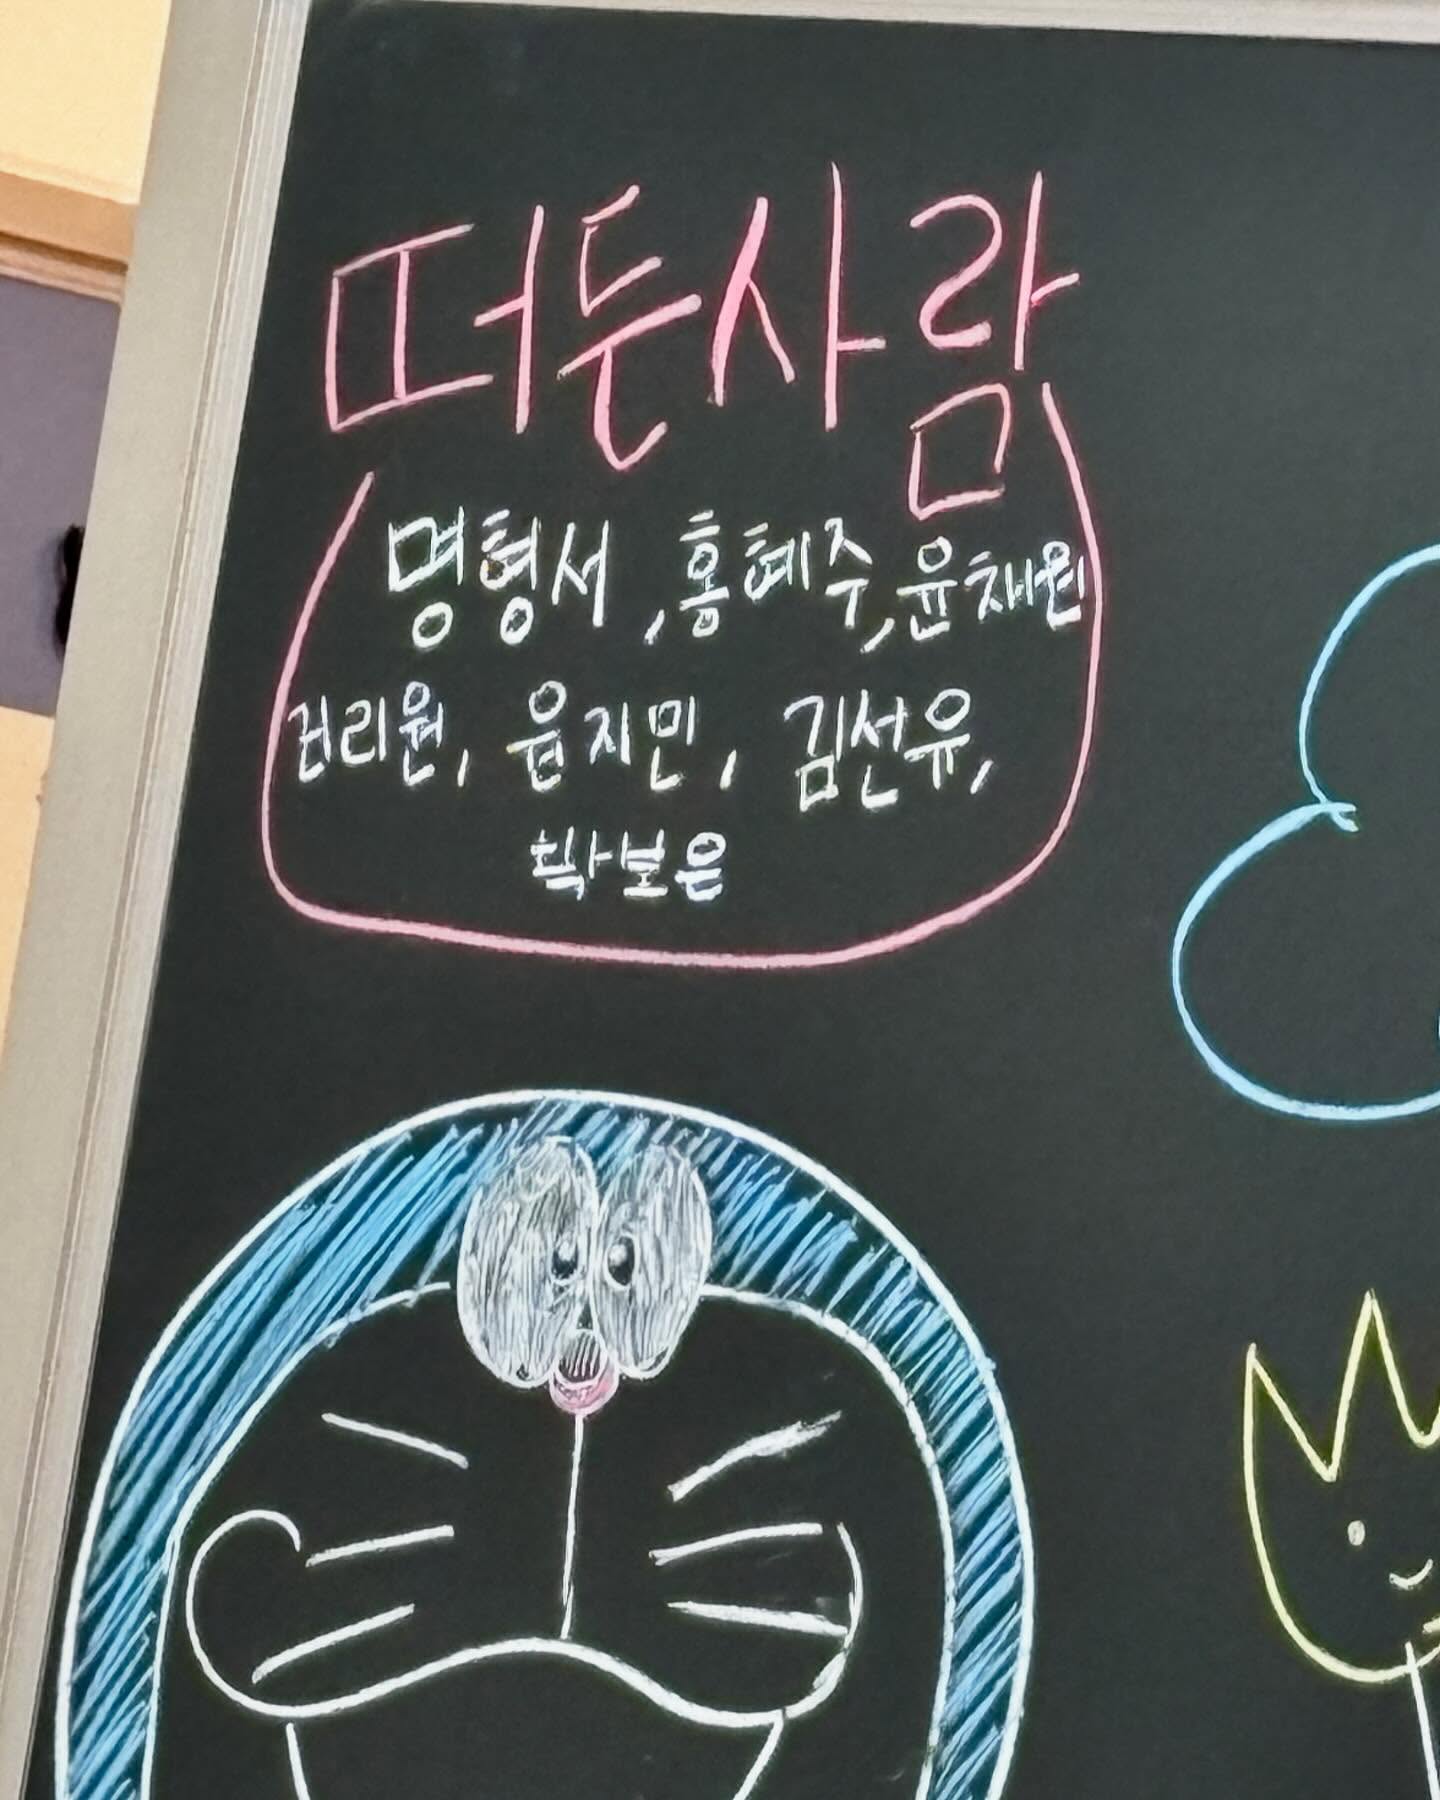 떠든사람
명형서, 홍혜주, 윤채원
리원, 윤지민, 김선유,
보은